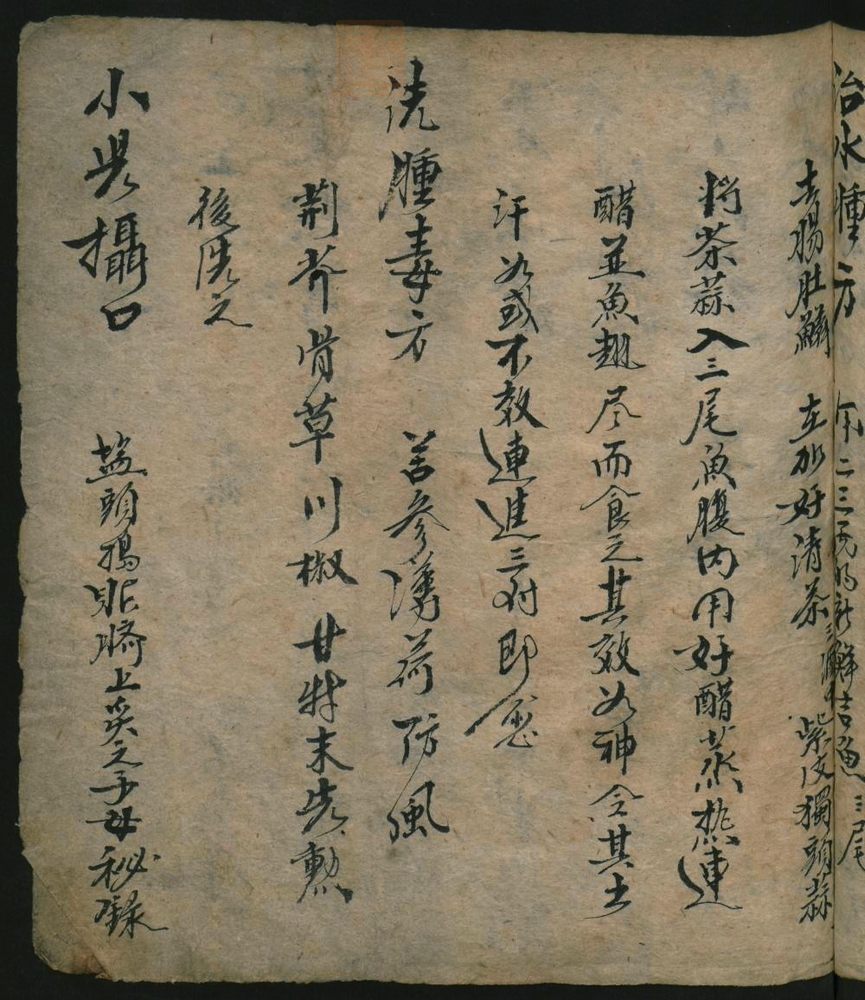 治水腫方 三尾
去腸肚鱗 好清茶 紫皮獨頭蒜
將茶蒜入三尾魚腹內用好醋蒸熟連
醋並魚翅尽而食之其效如神令其出
汗如或不效連進三付即愈
洗腫毒方 苦參薄荷防風
荊芥骨草川椒甘草末先熏
後洗之
小兒攝口 塩頭搗爛臍上灸之子母秘錄